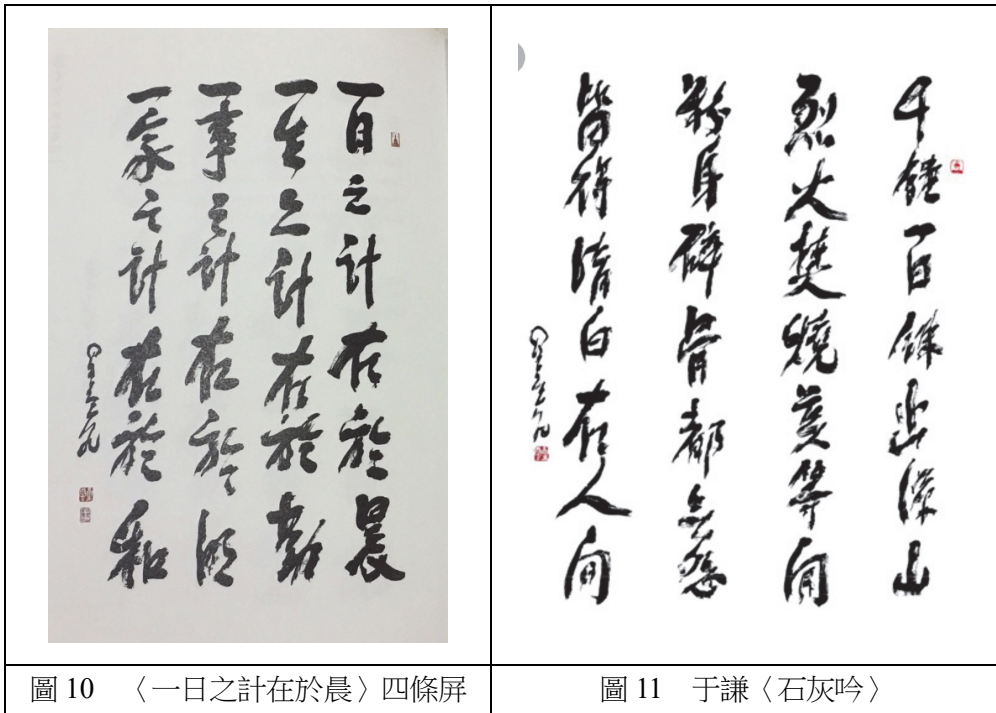 一日之計在於晨
一生之計在於勤
一事之計在於
一家之計在於和
千錘百鍊出深山
烈火焚燒等閒
粉身碎骨都怨
得清白在人間
圖 10 〈一日之計在於晨〉四條屏
圖 11 于謙〈石灰吟〉